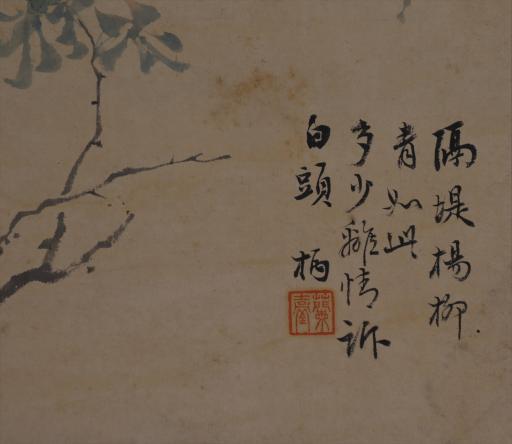 隔堤楊柳
青如此
多少離情訴
白頭 柄